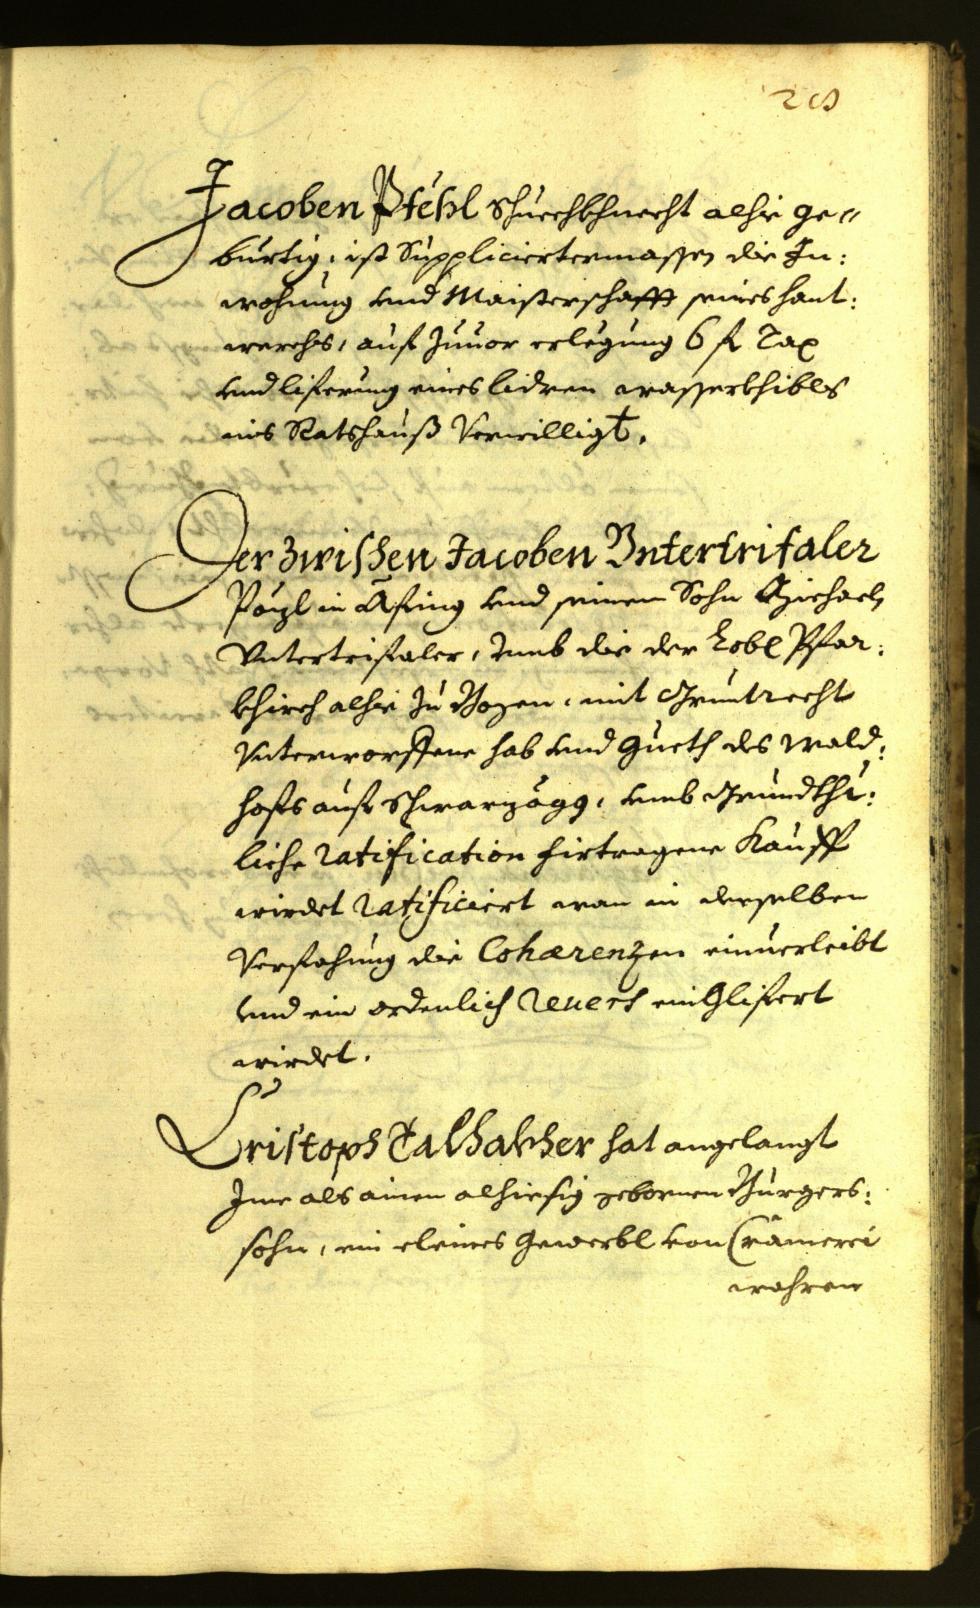 Jacoben Pfehl Schuechkhnecht alhie ge„
bürtig, ist Suppliciertermassen die In:
wohnung vnd Maisterschafft seines hant:
werchs, auf zuuor erlegung 6 fl Tax
vnd liferung eines lidren wasserkhibls
ins Ratshauß Verwilligt.
Der zwischen Jacoben Vntertrifaler
in Afing vnd seinem Sohn Michaeln
Vntertrifaler, vmb die der Lobl Pfar:
khirch alhie zu Bozen, mit Gruntrecht
Vnterworffene hab vnd Gueth des Wald:
hofs auf Schwarzögg, vmb Grundtht:
liche Ratification firtragene Kauff
wirdet Ratificiert wan in derselben
Verfahung die Cohærenzen einuerleibt
vnd ein ordenlich Reuers eingelifert
wirdet.
Cristoph Talhakher hat angelangt
Ime als ainen alhiesig gebornen Burgers:
sohn, ein cleines Gewerbl von Crämerei
wahren